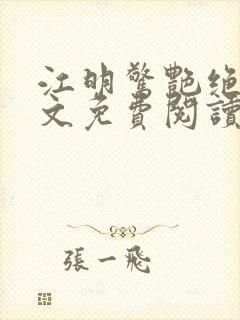 江明驚艷絶
文免費閱讀
張一飛